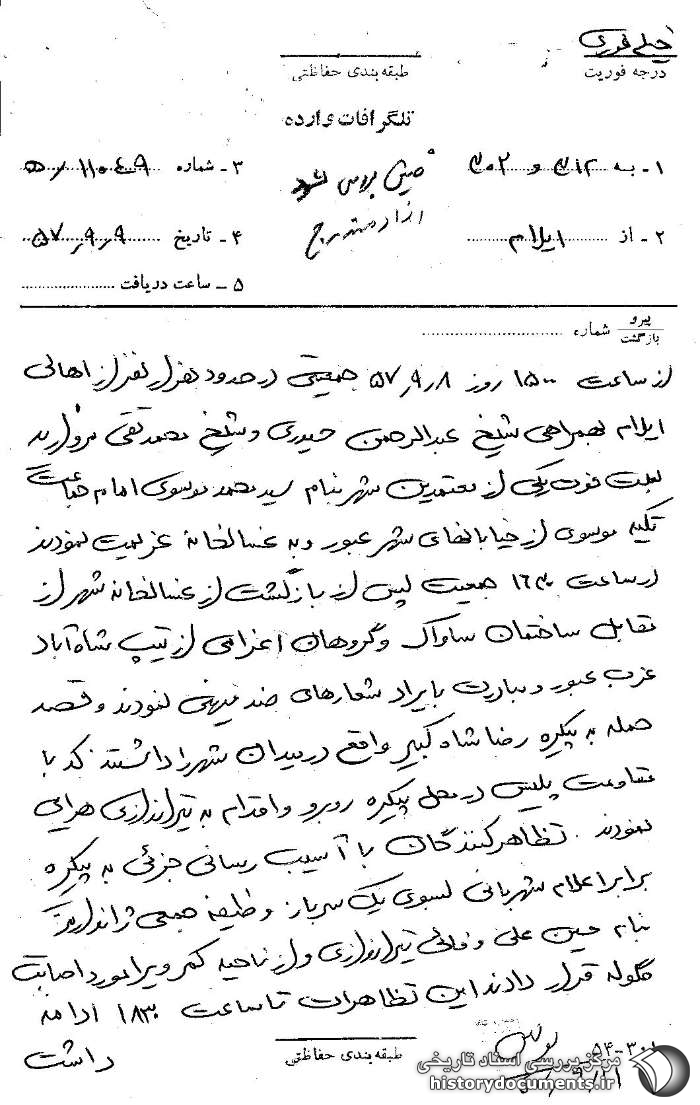 خیلی فوری
درجه فوریت
طبقه‌بندی حفاظتی
تلگرافات وارده
۱- به ۳۱۲ و ۳۰۲
۳- شماره
۲- از ایلام
۴- تاریخ ۵۷٫۹٫۹
۵- ساعت دریافت
پیرو
بازگشت
شماره
از ساعت ۱۵۰۰ روز ۵۷٫۹٫۸ جمعیتی در حدود هزار نفر از اهالی
ایلام بهمراهی شیخ عبدالرحمن حیدری و شیخ محمد تقی
بعلت فوت یکی از معتمدین شهر بنام سید محمد موسوی امام جماعت
تکیه موسوی از خیابانهای شهر عبور و به غسالخانه عزیمت نمودند
در ساعت ۱۶۳۰ جمعیت پس از بازگشت از غسالخانه شهر از
مقابل ساختمان ساواک و گروهان اعزامی از تیپ شاه‌آباد
غرب عبور و مبادرت بایراد شعارهای ضد میهنی نمودند و قصد
حمله به پیکره رضا شاه کبیر واقع در میدان شهر را داشتند که با
مقاومت پلیس در محل پیکره روبرو و اقدام به تیراندازی هوایی
نمودند. تظاهرکنندگان با آسیب رسانی جزئی به پیکره
برابر اعلام شهربانی بسوی یک سرباز وظیفه جمعی ژاندارمری
بنام حسین علی وفائی تیراندازی و از ناحیه کمر ویرا مورد اصابت
گلوله قرار دادند این تظاهرات تا ساعت ۱۸۳۰ ادامه
داشت
طبقه‌بندی حفاظتی
مرکز بررسی اسناد تاریخی
historydocuments.ir